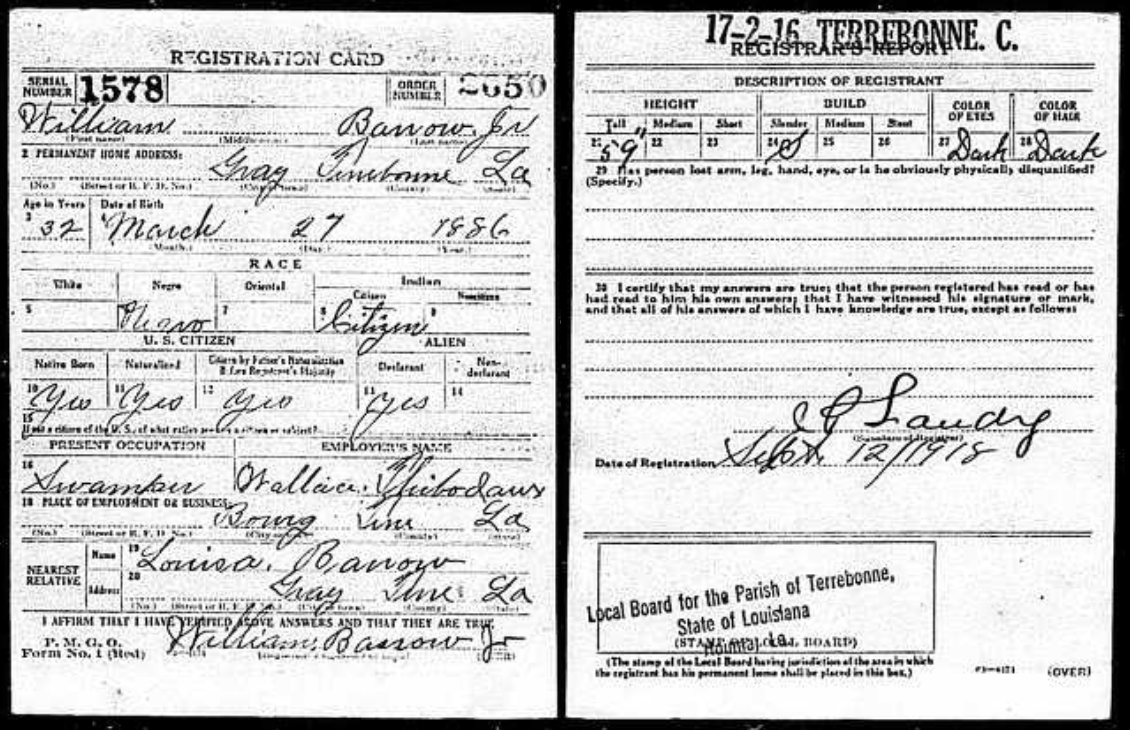 REGISTRATION CARD
SERIAL NUMBER 1578 ORDER NUMBER 2650
William Barrow Jr
(First name) (Middle name) (Last name)
2 PERMANENT HOME ADDRESS:
Gray Terrebonne La
(No.) (Street or R. F. D. No.) (City or town) (County) (State)
Age in Years Date of Birth
3 32 4 March 27 1886
(Month.) (Day.) (Year.)
RACE
White Negro Oriental Indian
Citizen Noncitizen
5 Negro 7 8 Citizen 9
U. S. CITIZEN ALIEN
Native Born Naturalized Citizen by Father's Naturalization Before Registrant's Majority Declarant Non-declarant
10 Yes 11 Yes 12 Yes 13 Yes 14
15 If not a citizen of the U. S., of what nation are you a citizen or subject?
PRESENT OCCUPATION EMPLOYER'S NAME
16 Swamper Wallace Thibodaux
18 PLACE OF EMPLOYMENT OR BUSINESS:
Bourg La
(No.) (Street or R. F. D. No.) (City or town) (County) (State)
NEAREST RELATIVE Name 19 Louisa Barrow
Address 20 Gray La
(No.) (Street or R. F. D. No.) (City or town) (County) (State)
I AFFIRM THAT I HAVE VERIFIED ABOVE ANSWERS AND THAT THEY ARE TRUE
P. M. G. O.
Form No. 1 (Red) William Barrow Jr
17-2-16 TERREBONNE. C.
REGISTRAR'S REPORT
DESCRIPTION OF REGISTRANT
HEIGHT BUILD COLOR OF EYES COLOR OF HAIR
Tall Medium Short Slender Medium Stout
21 5 9" 22 23 24 S 25 26 27 Dark 28 Dark
29 Has person lost arm, leg, hand, eye, or is he obviously physically disqualified?
(Specify.)
30 I certify that my answers are true; that the person registered has read or has
had read to him his own answers; that I have witnessed his signature or mark,
and that all of his answers of which I have knowledge are true, except as follows:
Landry
(Signature of Registrar)
Date of Registration Sept. 12/1918
Local Board for the Parish of Terrebonne,
State of Louisiana
(STAMP OF LOCAL BOARD)
Houma, La.
(The stamp of the Local Board having jurisdiction of the area in which
the registrant has his permanent home shall be placed in this box.)
(OVER)